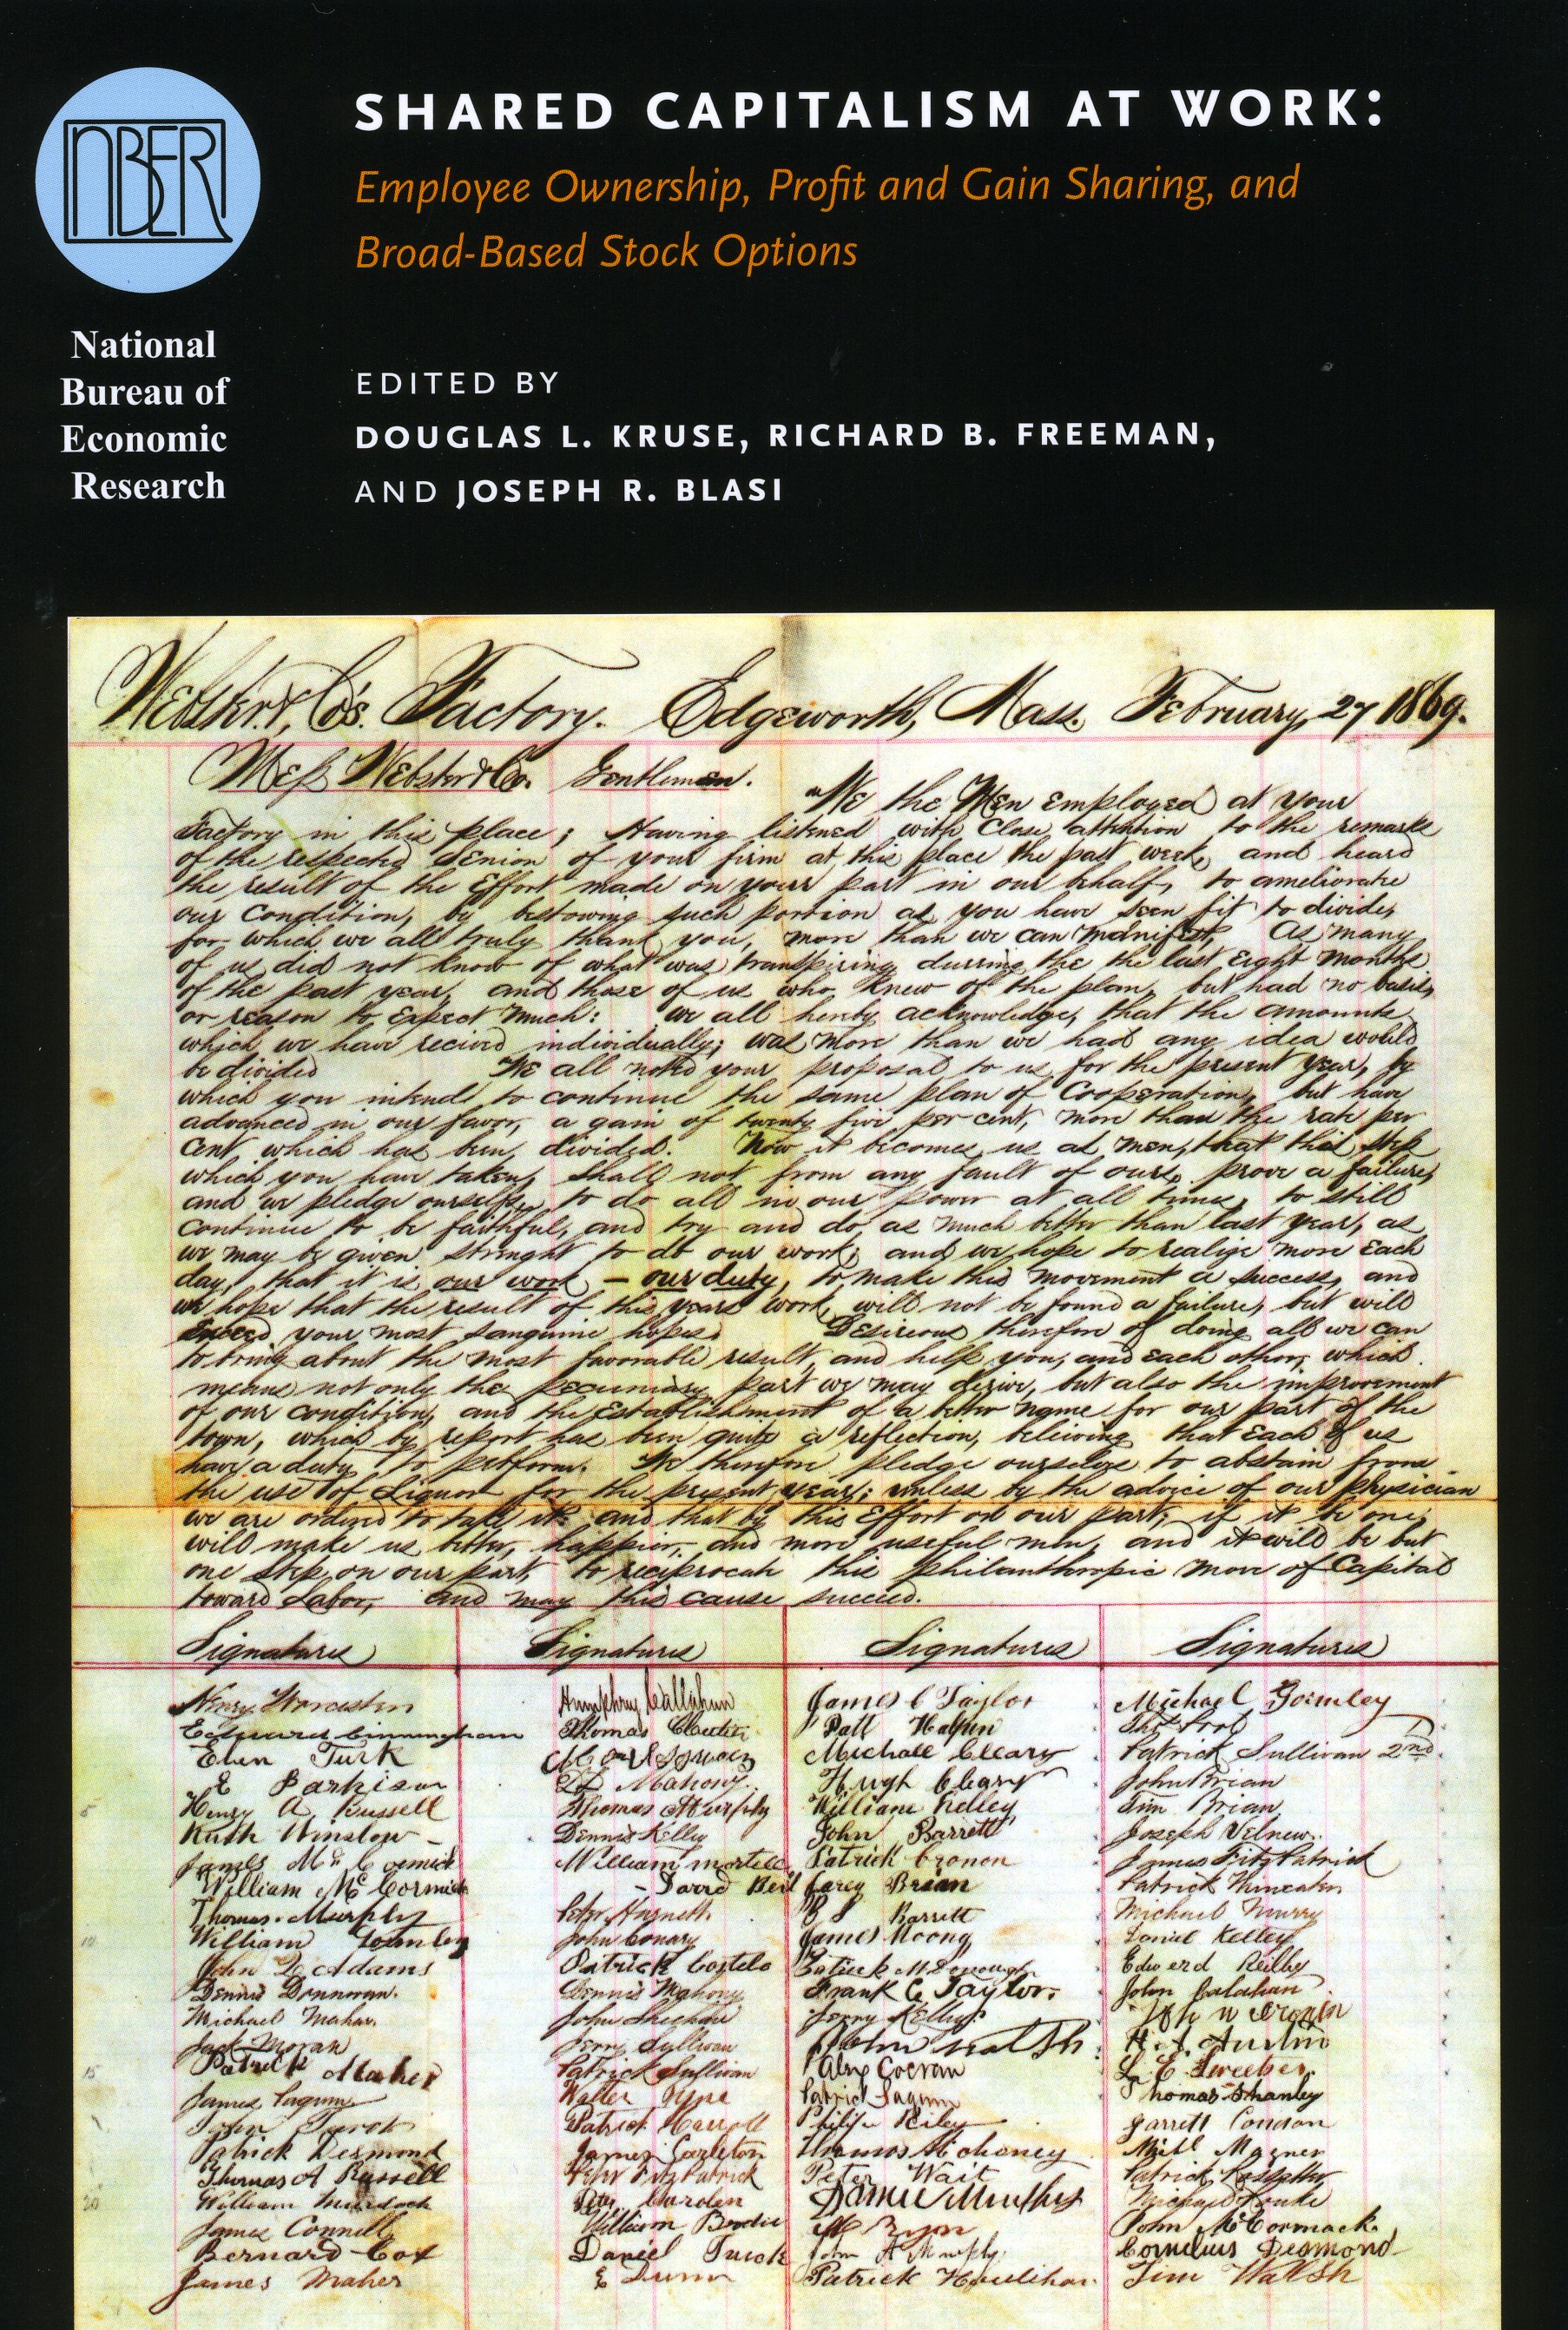 NBER
SHARED CAPITALISM AT WORK:
Employee Ownership, Profit and Gain Sharing, and
Broad-Based Stock Options
National
Bureau of
Economic
Research
EDITED BY
DOUGLAS L. KRUSE, RICHARD B. FREEMAN,
AND JOSEPH R. BLASI
Webster & Co's. Factory. Edgeworth, Mass. February, 27 1869.
Mess Webster & Co. Gentlemen.
We the Men employed at your
Factory in this place; Having listened with Close attention to the remarks
of the respected Senior of your firm at this place the past week, and heard
the result of the Effort made on your part in our behalf, to ameliorate
our Condition, by bestowing such portion as you have seen fit to divide,
for which we all truly thank you, more than we can manifest, As many
of us did not know of what was transpiring durring the the last Eight months
of the past year, and those of us who knew of the plan, but had no basis,
or reason to Expect much: we all hereby acknowledge, that the amounts
which we have recived individually; was more than we had any idea would
be divided We all noted your proposal to us for the present year, by
which you intend to continue the same plan of Cooperation, but have
advanced in our favor, a gain of twenty five per cent, more than the rate per
Cent, which has been divided. Now it becomes us as men, that this step
which you have taken, shall not from any fault of ours, prove a failure,
and we pledge ourselfs, to do all in our power at all times, to still
Continue to be faithful, and try and do, as much better than last year, as
we may be given strenght to do our work; and we hope to realize more Each
day, that it is our work - our duty, to make this movement a success, and
we hope that the result of this years work, will not be found a failure, but will
Exceed your most sanguine hopes. Desireous therefore of doing all we can
to bring about the most favorable result, and help you, and each other, which
means not only the pecuniary part we may derive, but also the improvement
of our condition, and the Establishment of a better name for our part of the
town, which by report has been quite a reflection, believing that Each of us
have a duty to perform. We therefore pledge ourselves to abstain from
the use of Liquor for the present year; unless by the advice of our physician
we are ordered to take it: and that by this Effort on our part, if it be one,
will make us better, happier, and more useful men, and it will be but
one step, on our part, to reciprocate this philanthropic move of Capital
toward Labor, and may this cause succeed.
Signatures Signatures Signatures Signatures
Henry Worcester Humphrey Callahan James C Taylor Michael Gormley
Edward Cunningham Thomas Patt Halpin
Turk Michael Cleary Patrick Sullivan 2nd.
E Parkison Mahony. Hugh Cleary John Brian
5 Henry A. Russell Thomas Murphy William Kelley Tim Brian
Ruth Winslow Dennis Kelley John Barrett Joseph
James Mc Cormick William Patrick Cronon James Fitz Patrick
William Mc Cormick Brian Patrick
Thomas Murphy Peter Barrett Michael Murry
10 William Gormley John Conary James Daniel Kelley
John Q Adams Patrick Costelo Patrick Edwerd Reilby
Denius Drennan. Dennis Mahony Frank C Taylor. John Calahan
Michael Mahar. John Sheehan Jerry Kelley
Jack Moran Jerry Sullivan John H. A. Austin
15 Patrick Maher Patrick Sullivan Alex Cocran
James Walter Patrick Thomas Shanley
John Patrick Carroll Philip Riley Garrett Condon
Patrick Desmond James Thomas Mohoney Michl Magner
Thomas A Russell Peter Fitz Patrick Peter Wait Patrick
20 William Murdock Peter Carolen Michael
James Connell William Brodie M Ryon John McCormack
Bernard Cox Daniel John A Murphy Cornelius Desmond
James Maher E Dunn Patrick Houlihan Tim Walsh